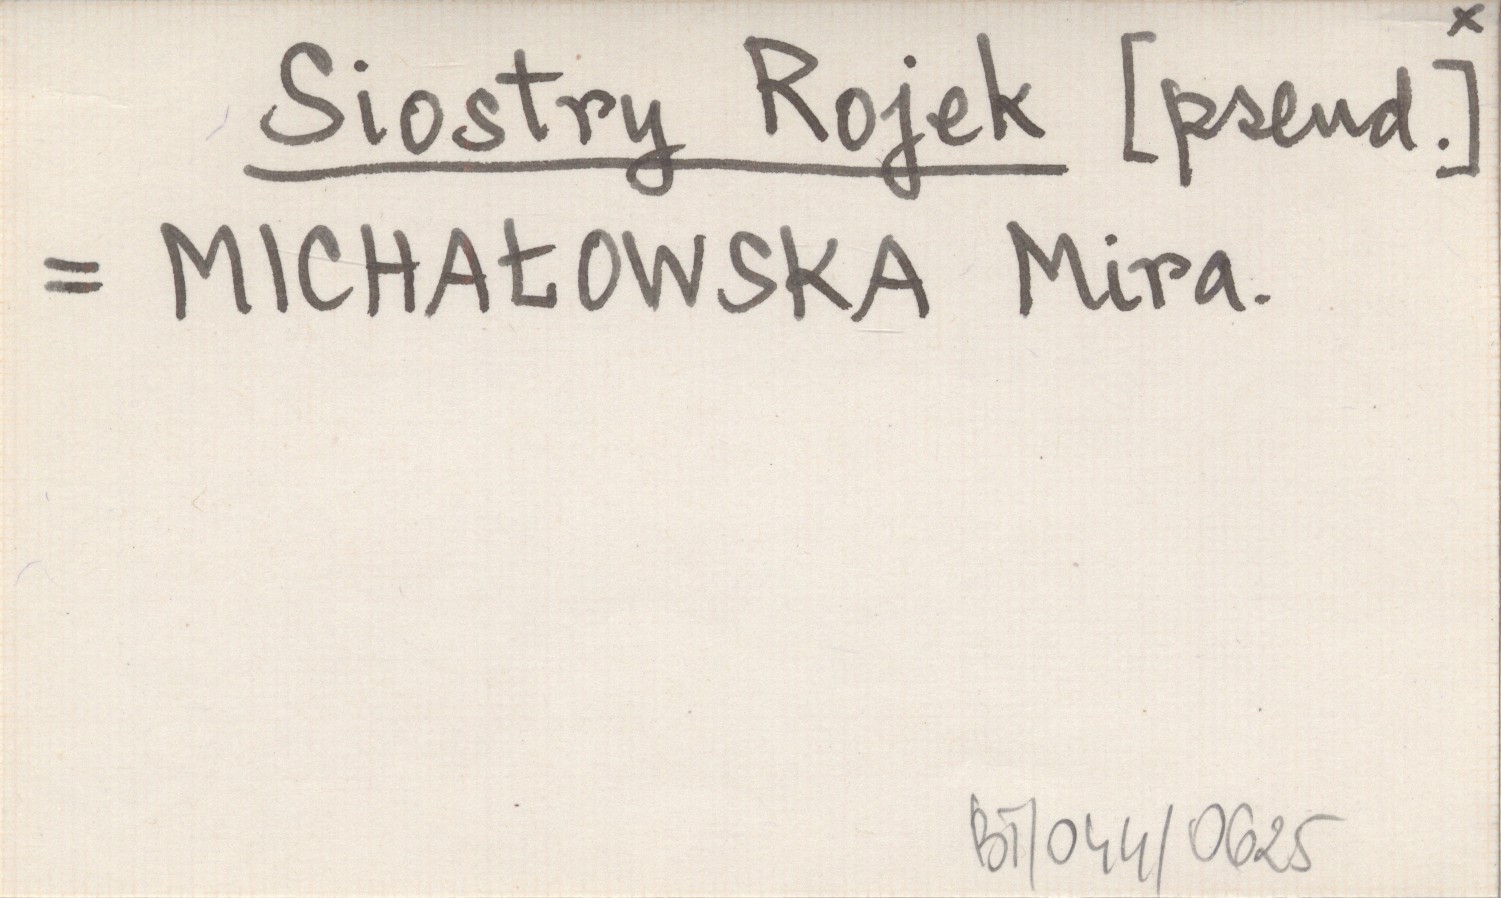 x
Siostry Rojek [pseud.]
= MICHAŁOWSKA Mira.
BT/044/0625